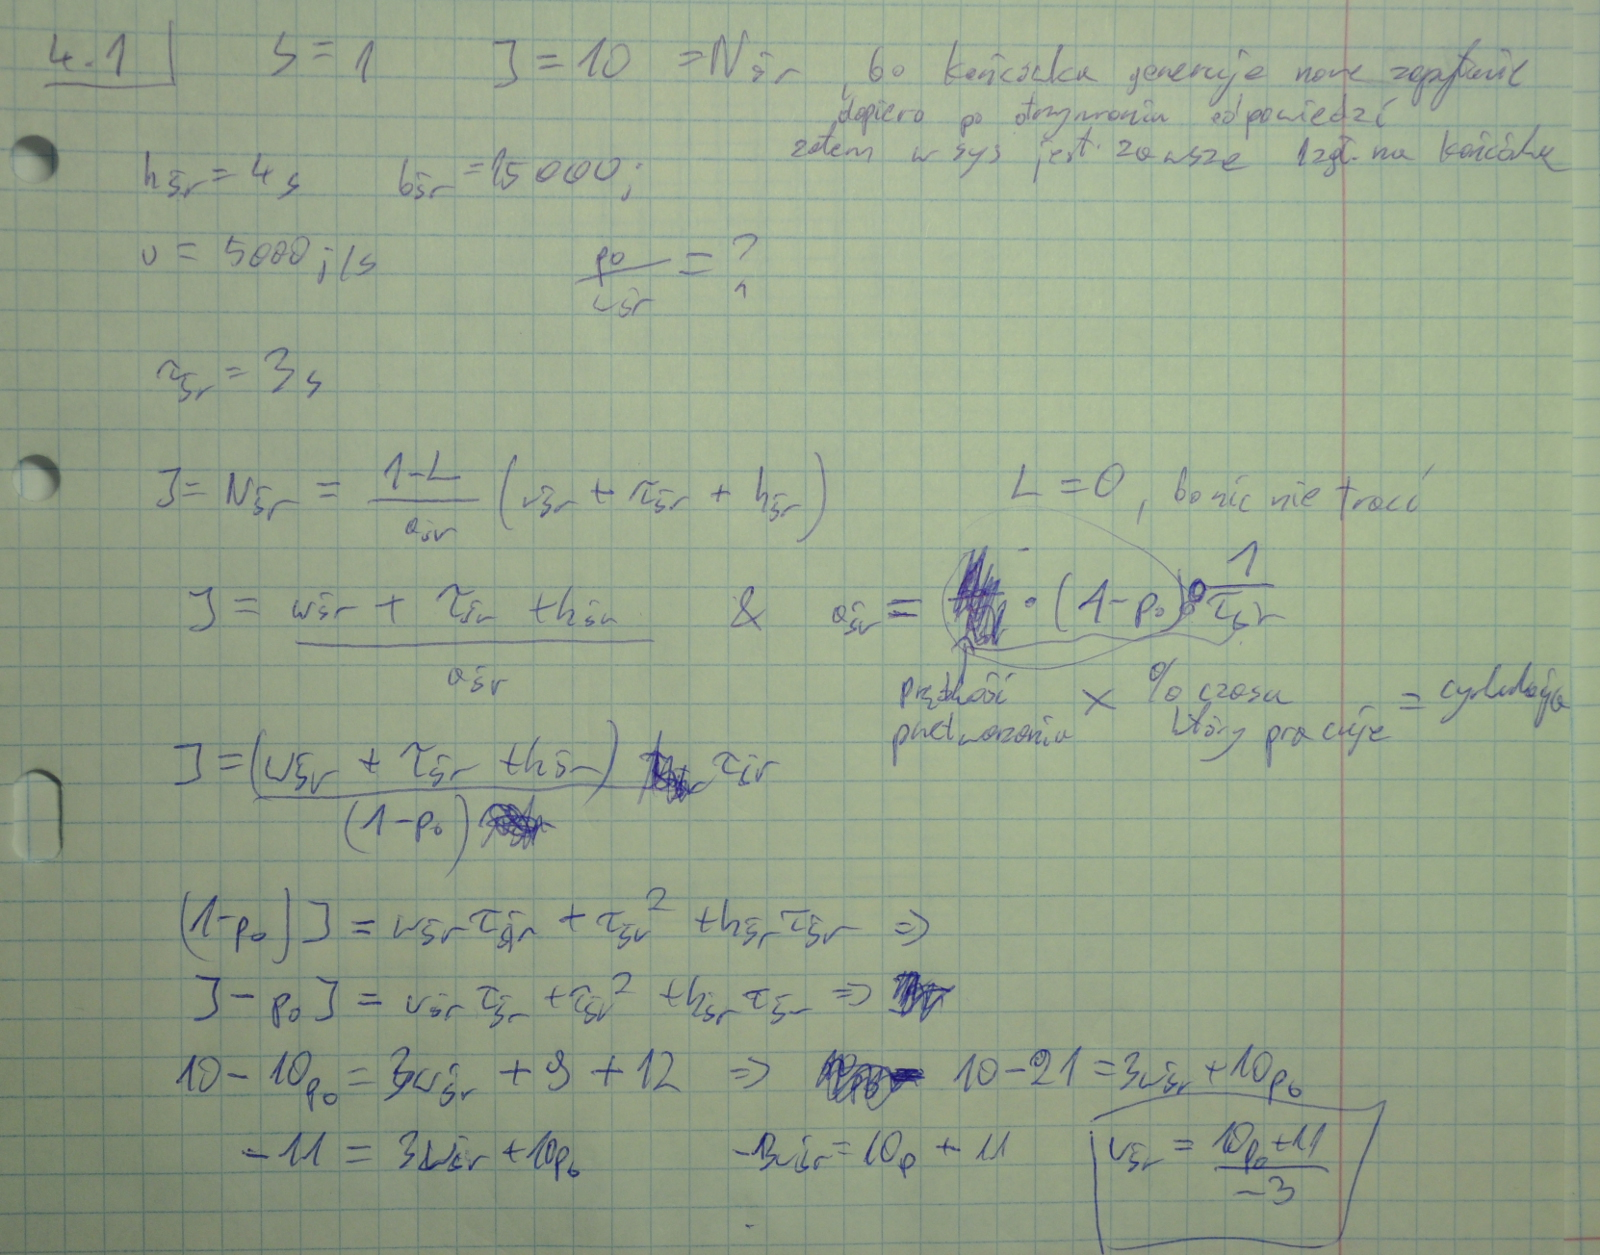 4.1 S = 1 J = 10 = Nśr, bo końcówka generuje nowe zapytanie
dopiero po otrzymaniu odpowiedzi
zatem w sys jest zawsze 1 zgł. na końcówkę
hśr = 4 s bśr = 15 000 j
v = 5000 j/s po/wśr = ?
τśr = 3 s
J = Nśr = (1-L)/aśr (wśr + τśr + hśr) L = 0, bo nic nie traci
J = (wśr + τśr + hśr)/aśr & aśr = · (1-p₀) · 1/τśr
prędkość przetwarzania × % czasu który pracuje =
J = (wśr + τśr + hśr) τśr / (1-p₀)
(1-p₀) J = wśr τśr + τśr² + hśr τśr ⇒
J - p₀ J = wśr τśr + τśr² + hśr τśr ⇒
10 - 10p₀ = 3wśr + 9 + 12 ⇒ 10 - 21 = 3wśr + 10p₀
-11 = 3wśr + 10p₀ -3wśr = 10p + 11 wśr = (10p₀+11)/-3